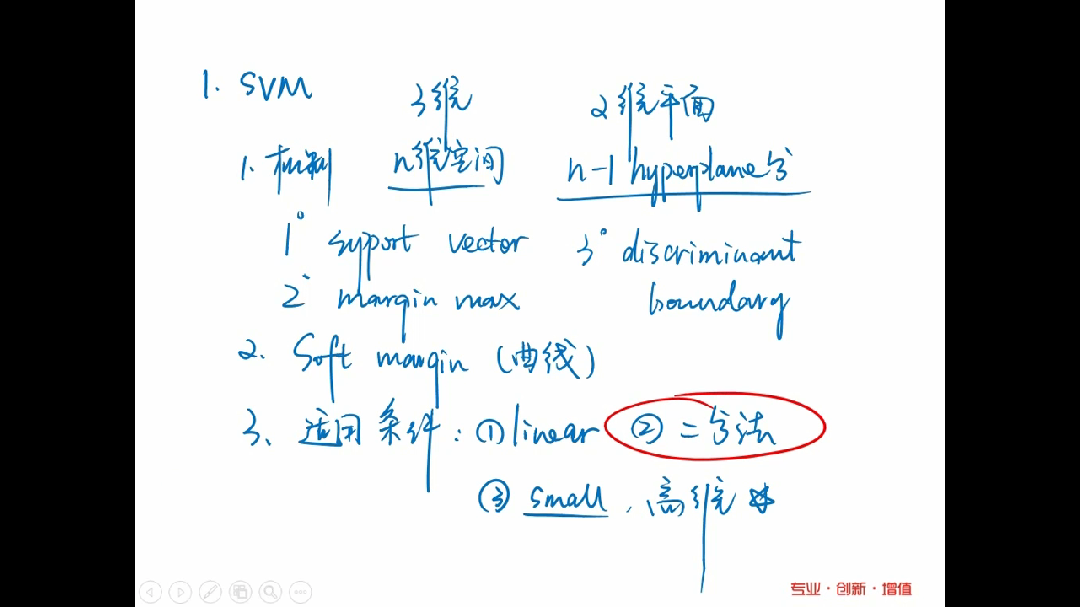 1. SVM 3维 2维平面
1. 机制 n维空间 n-1 hyperplane分
1° support vector 3° discriminant
2° margin max boundary
2、Soft margin (曲线)
3、适用条件: ① linear ② 二分法
③ small、高维
专业·创新·增值